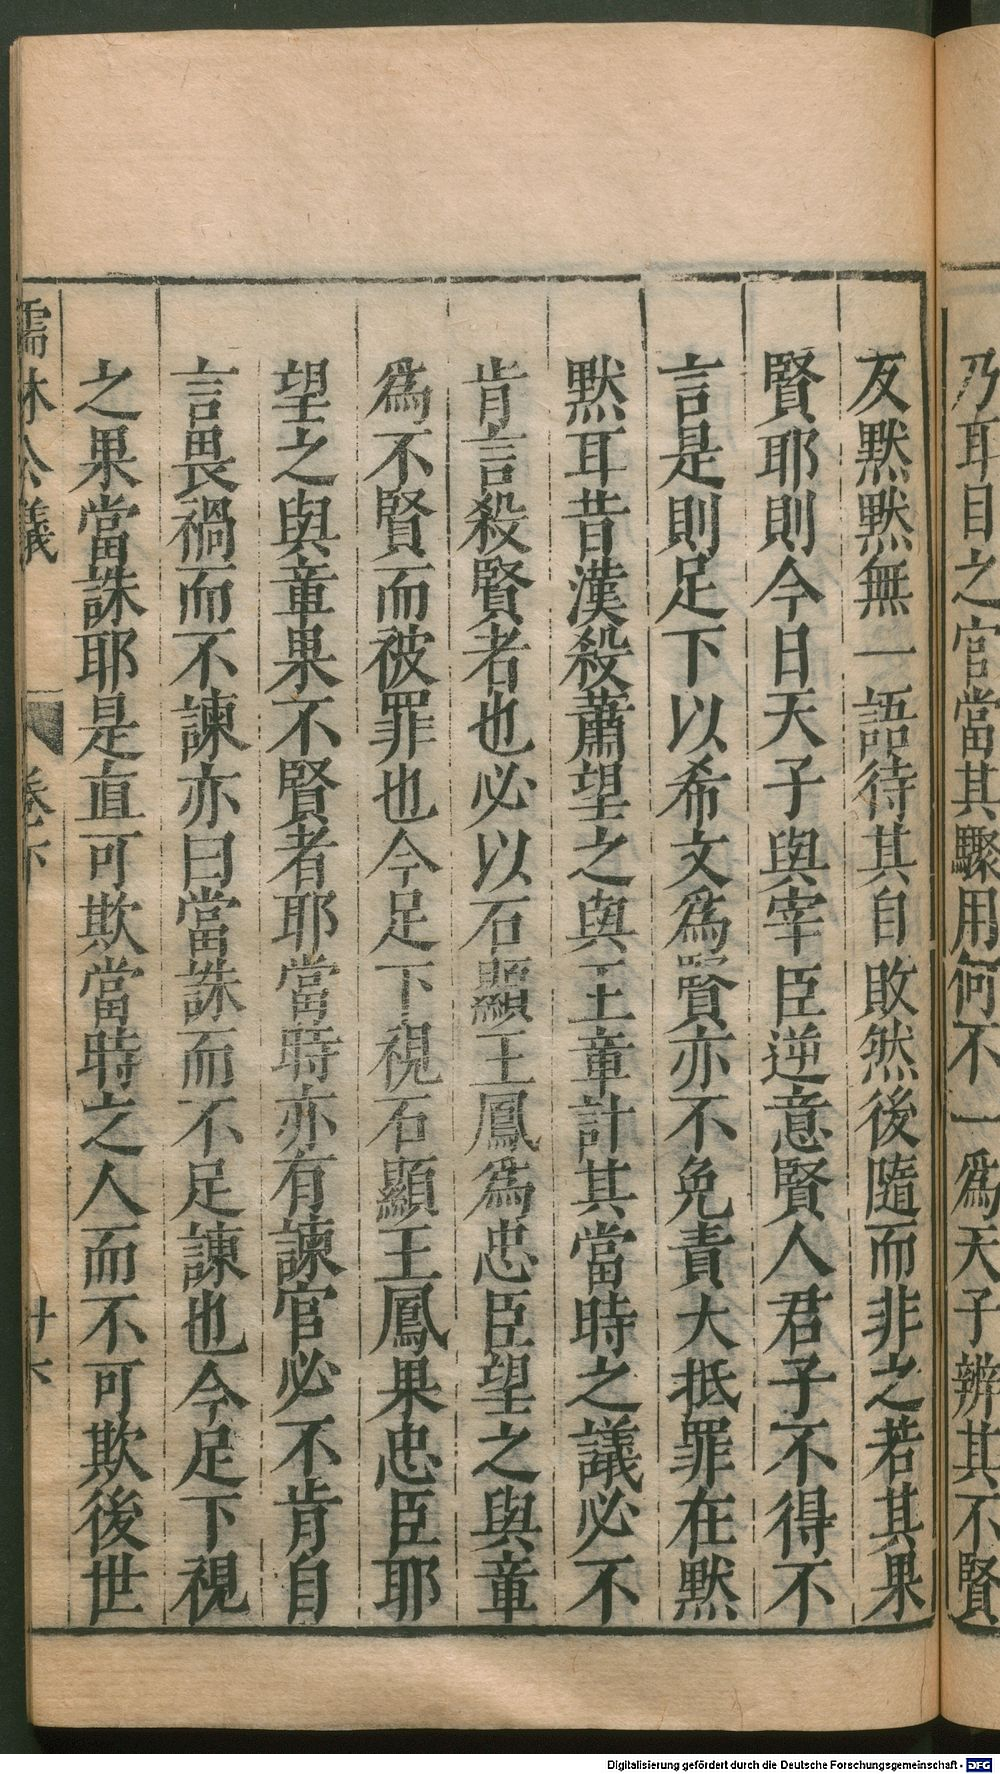 乃耳目之官當其驟用何不一爲天子辨其不賢
反默默無一語待其自敗然後隨而非之若其果
賢耶則今日天子與宰臣逆意賢人君子不得不
言是則足下以希文爲賢亦不免責大抵罪在默
默耳昔漢殺蕭望之與王章計其當時之議必不
肯言殺賢者也必以石顯王鳳爲忠臣望之與章
爲不賢而被罪也今足下視石顯王鳳果忠臣耶
望之與章果不賢者耶當時亦有諫官必不肯自
言畏禍而不諫亦曰當誅而不足諫也今足下視
之果當誅耶是直可欺當時之人而不可欺後世
儒林公議 卷下 廿六
Digitalisierung gefördert durch die Deutsche Forschungsgemeinschaft - DFG